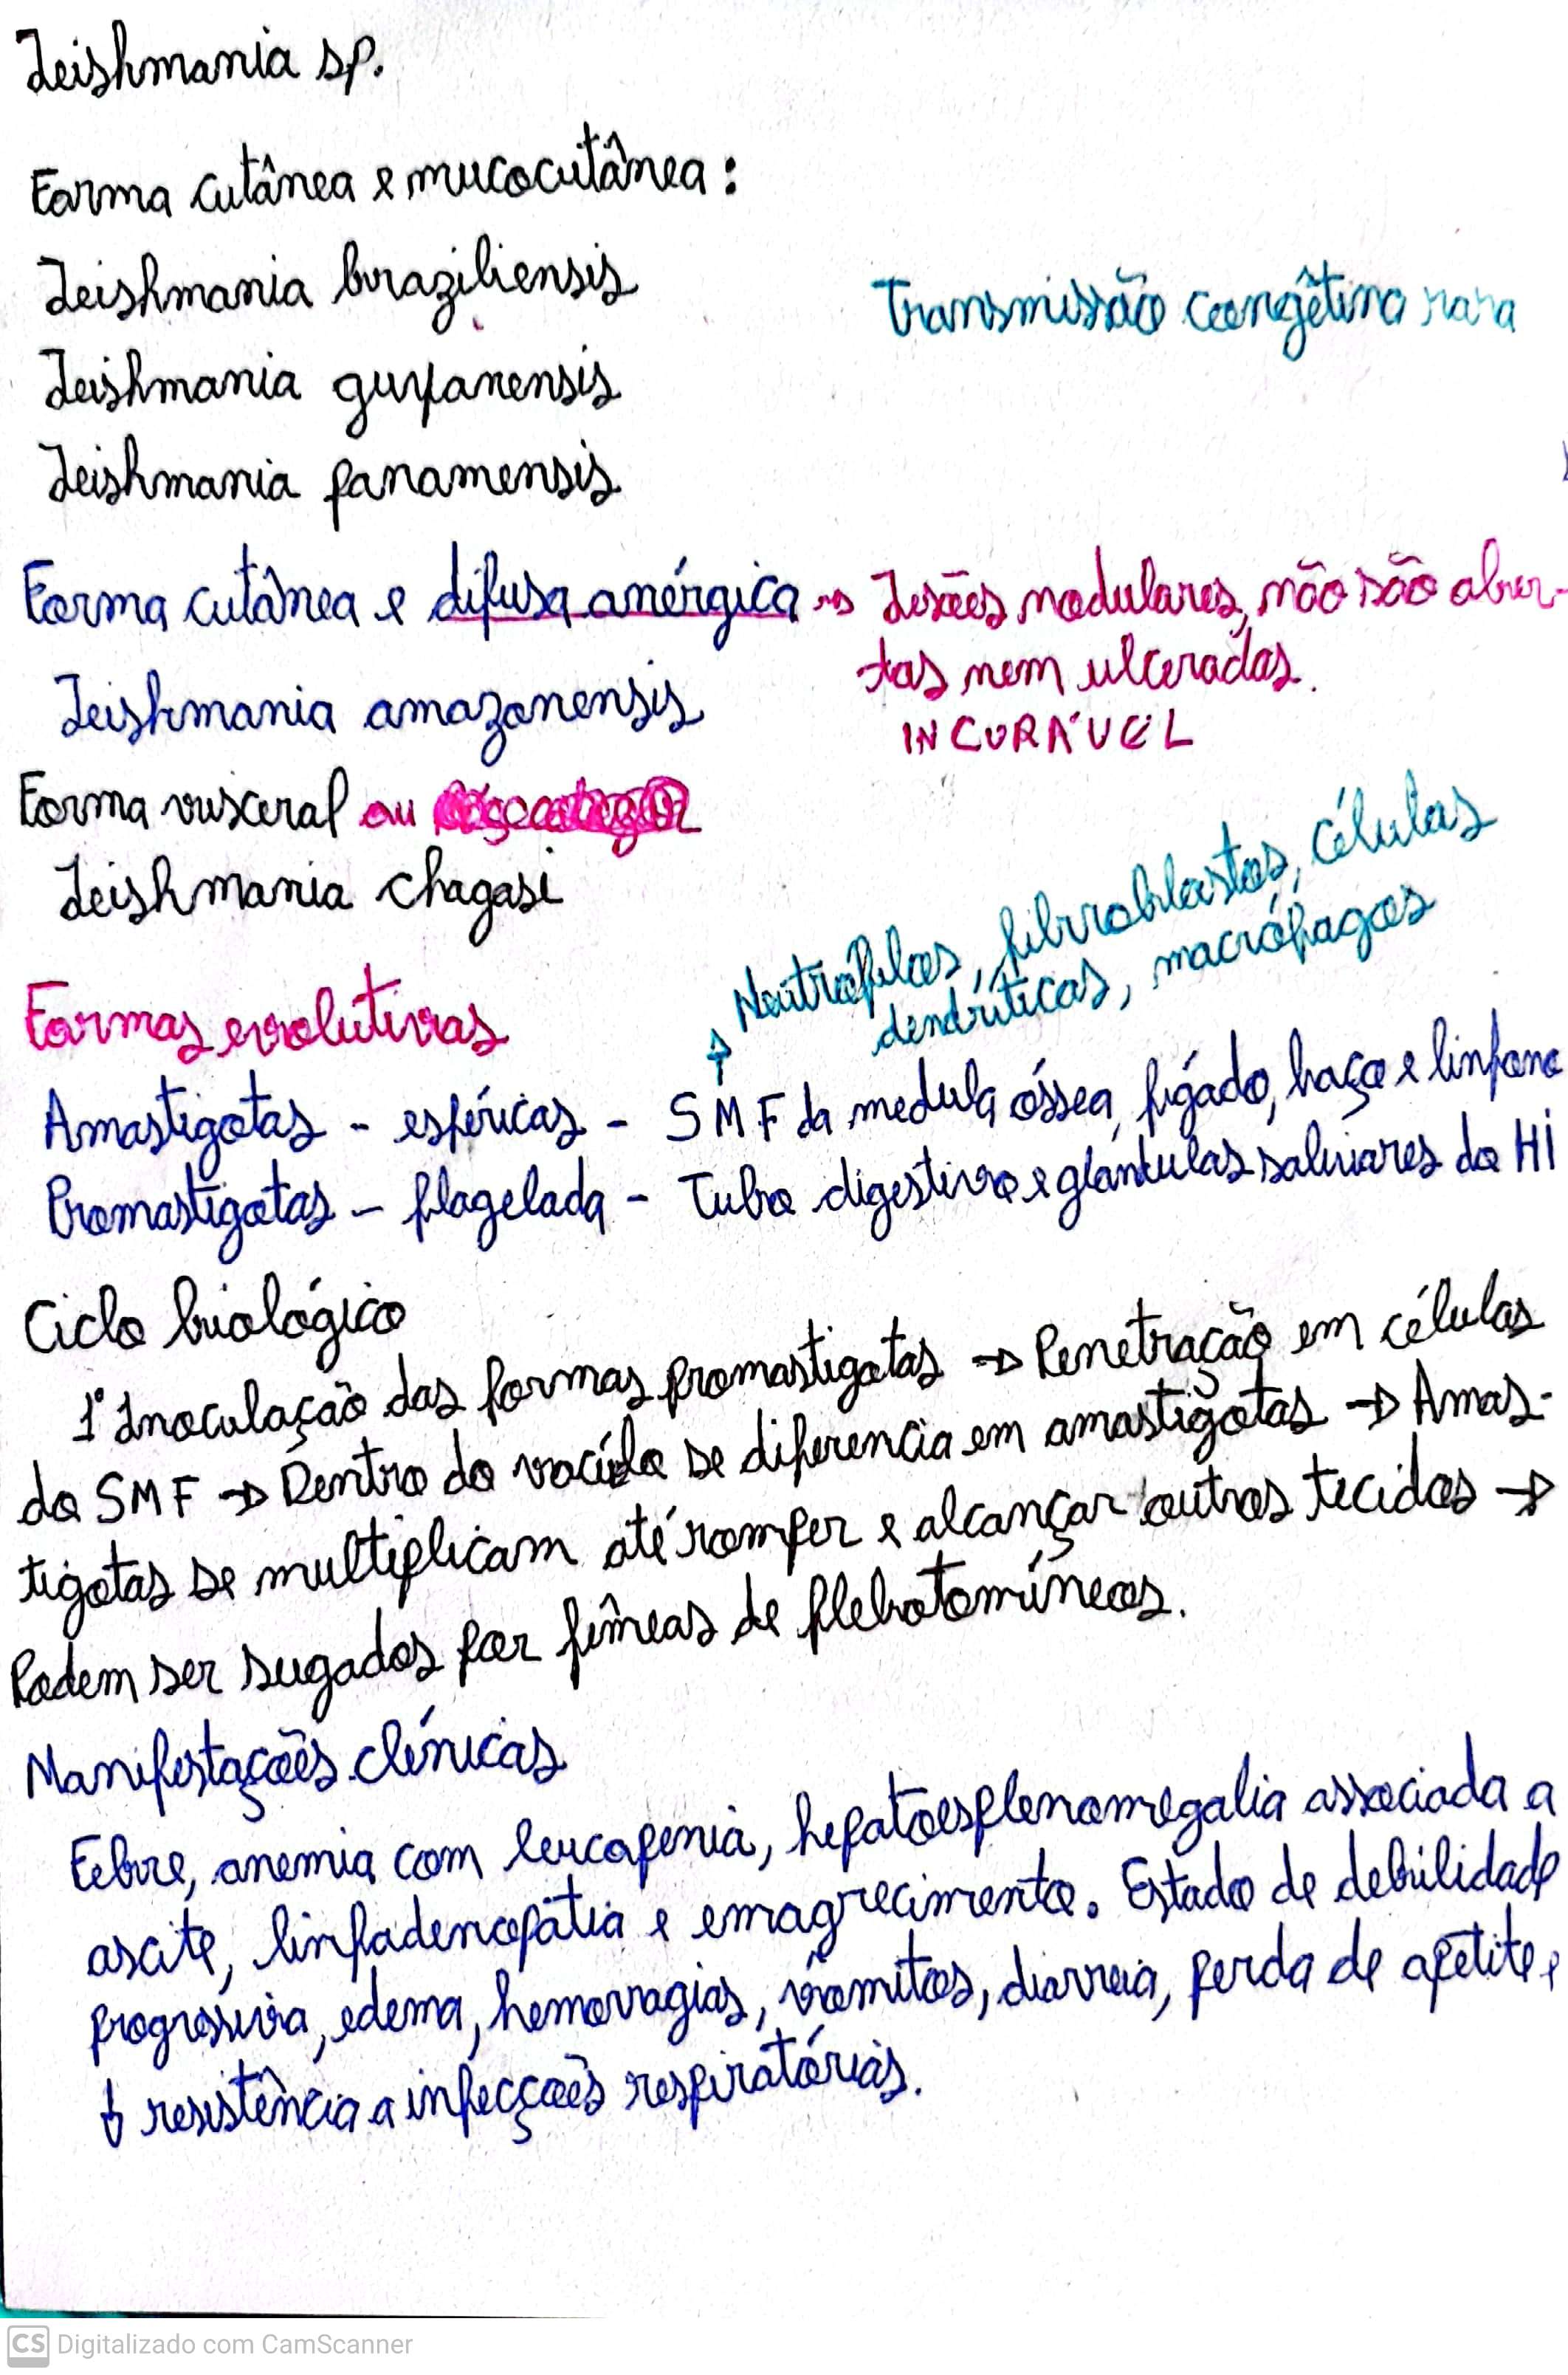 Leishmania sp.
Forma cutânea e mucocutânea:
Leishmania braziliensis
Transmissão congêtina rara
Leishmania guyanensis
Leishmania panamensis
Forma cutânea e difusa anérgica → Lesões nodulares, não são aber-
tas nem ulceradas.
Leishmania amazonensis
INCURÁVEL
Forma visceral ou
Leishmania chagasi
Neutrófilos, fibroblastos, células
dendríticas, macrófagos
Formas evolutivas
Amastigotas - esféricas - SMF da medula óssea, fígado, baço e linfono
Promastigotas - flagelada - Tubo digestivo e glândulas salivares do HI
Ciclo biológico
1° Inoculação das formas promastigotas → Penetração em células
do SMF → Dentro do vacúolo se diferencia em amastigotas → Amas-
tigotas se multiplicam até romper e alcançar outros tecidos →
Podem ser sugados por fêmeas de flebotomíneos.
Manifestações clínicas
Febre, anemia com leucopenia, hepatoesplenomegalia associada a
ascite, linfadenopatia e emagrecimento. Estado de debilidade
progressiva, edema, hemorragias, vômitos, diarreia, perda de apetite e
↓ resistência a infecções respiratórias.
CS Digitalizado com CamScanner